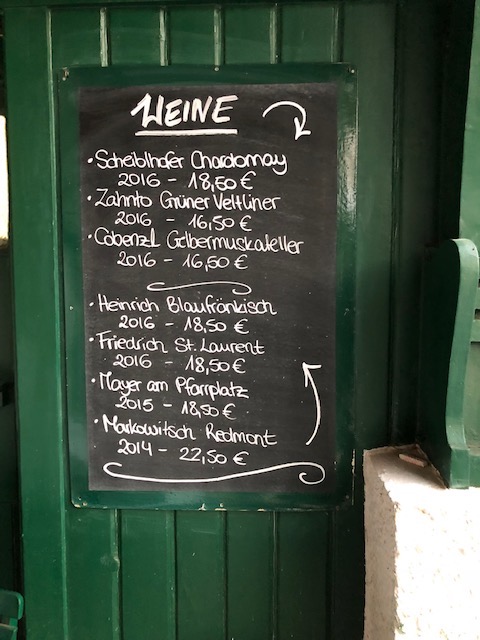 WEINE
· Scheiblhofer Chardonnay
2016 - 18,50 €
· Zahnto Grüner Veltliner
2016 - 16,50 €
· Cobenzl Gelbermuskateller
2016 - 16,50 €
· Heinrich Blaufränkisch
2016 - 18,50 €
· Friedrich St. Laurent
2016 - 18,50 €
· Mayer am Pfarrplatz
2015 - 18,50 €
· Markowitsch Redmont
2014 - 22,50 €